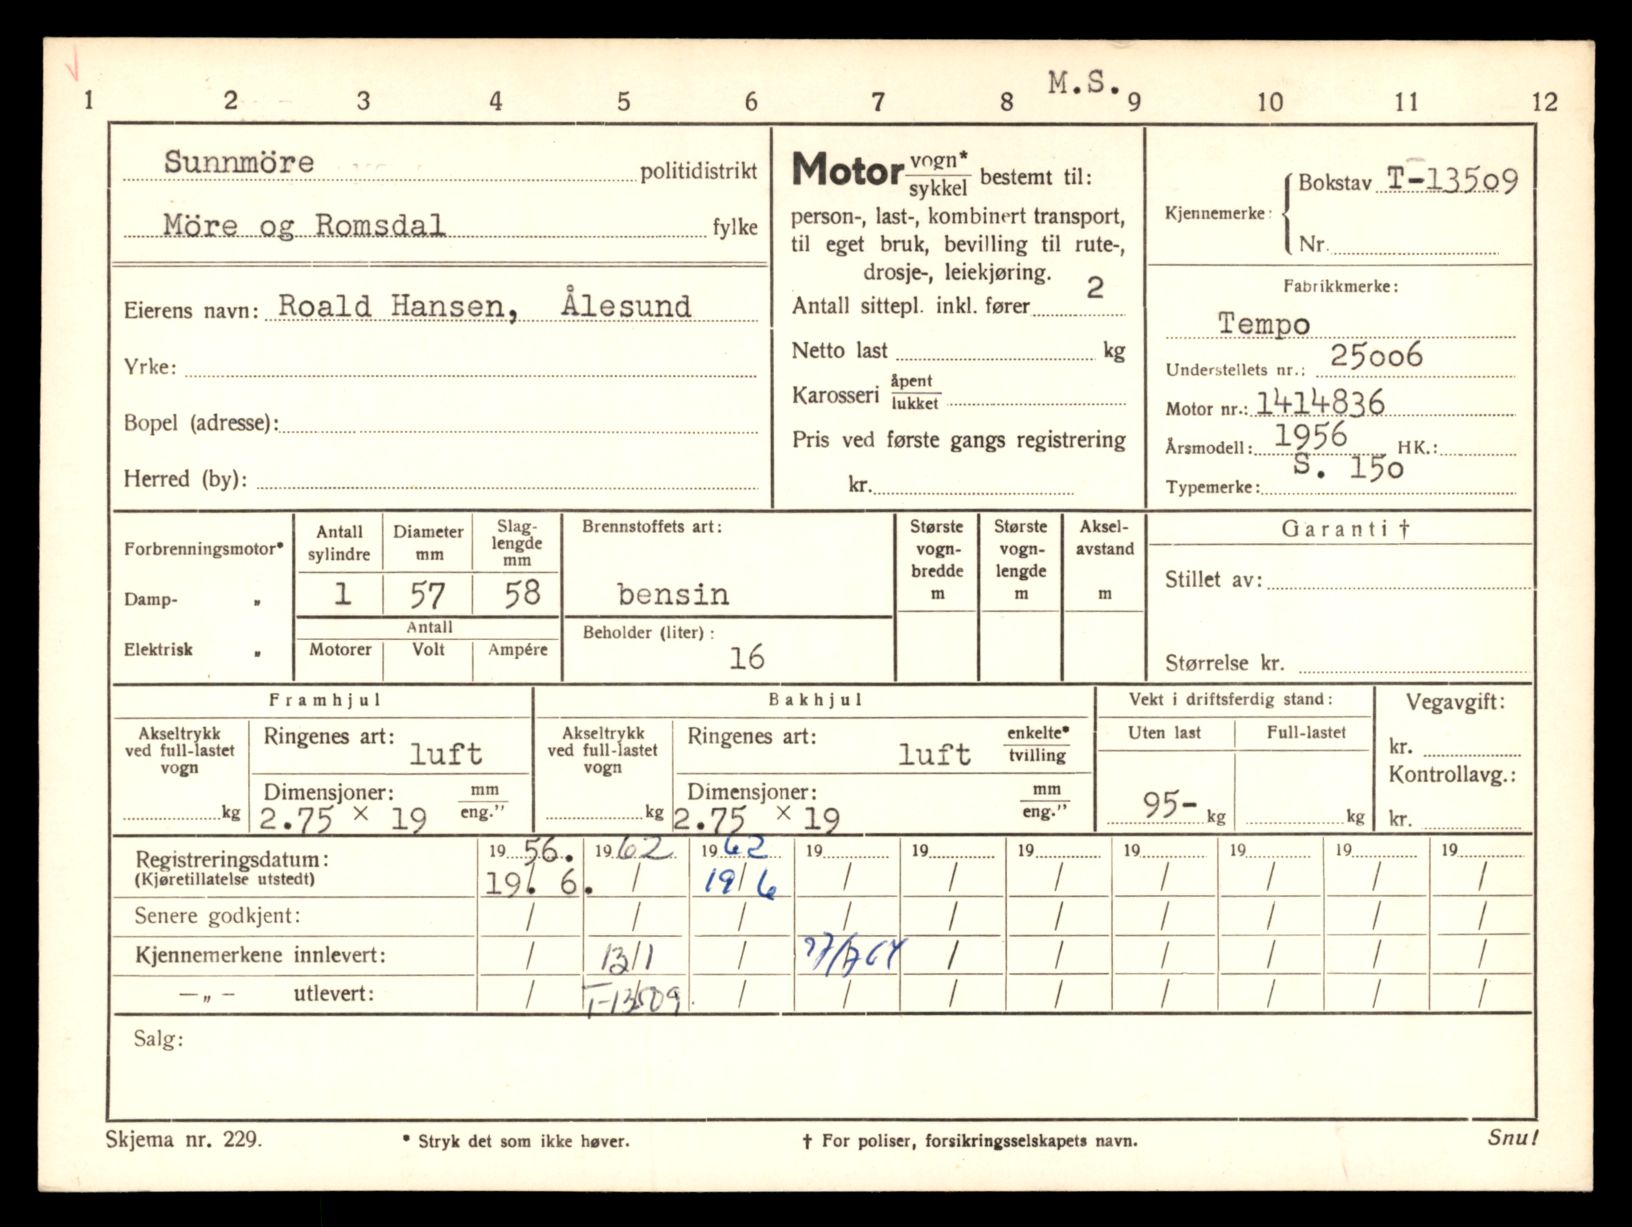 M.S.
1 2 3 4 5 6 7 8 9 10 11 12
Sunnmöre politidistrikt
Möre og Romsdal fylke
Eierens navn: Roald Hansen, Ålesund
Yrke:
Bopel (adresse):
Herred (by):
Motor vogn*/sykkel bestemt til:
person-, last-, kombinert transport,
til eget bruk, bevilling til rute-,
drosje-, leiekjøring.
Antall sittepl. inkl. fører 2
Netto last kg
Karosseri åpent/lukket
Pris ved første gangs registrering
kr.
Kjennemerke: Bokstav T-13509
Nr.
Fabrikkmerke:
Tempo
Understellets nr.: 25006
Motor nr.: 1414836
Årsmodell: 1956 HK.:
Typemerke: S. 150
Forbrenningsmotor*
Damp- „
Elektrisk „
Antall sylindre
1
Diameter mm
57
Slag-lengde mm
58
Antall
Motorer Volt Ampére
Brennstoffets art:
bensin
Beholder (liter):
16
Største vogn-bredde m
Største vogn-lengde m
Aksel-avstand m
Garanti †
Stillet av:
Størrelse kr.
Framhjul
Akseltrykk ved full-lastet vogn
kg
Ringenes art: luft
Dimensjoner: mm/eng."
2.75 x 19
Bakhjul
Akseltrykk ved full-lastet vogn
kg
Ringenes art: luft enkelte*/tvilling
Dimensjoner: mm/eng."
2.75 x 19
Vekt i driftsferdig stand:
Uten last Full-lastet
95- kg kg
Vegavgift:
kr.
Kontrollavg.:
kr.
Registreringsdatum: 1956. 1962 1962 19 19 19 19 19 19 19
(Kjøretillatelse utstedt) 19. 6. / 19/6 / / / / / / /
Senere godkjent: / / / / / / / / / /
Kjennemerkene innlevert: / 13/1 / 64 / / / / / /
—„— utlevert: / T-13509. / / / / / / / /
Salg:
Skjema nr. 229.
* Stryk det som ikke høver.
† For poliser, forsikringsselskapets navn.
Snu!